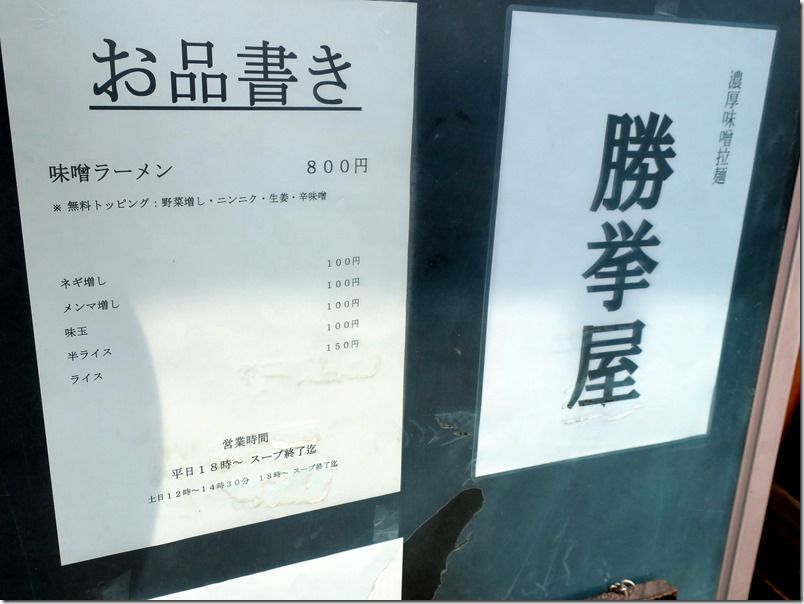 お品書き
味噌ラーメン ８００円
※ 無料トッピング：野菜増し・ニンニク・生姜・辛味噌
ネギ増し １００円
メンマ増し １００円
味玉 １００円
半ライス １００円
ライス １５０円
営業時間
平日１８時～ スープ終了迄
土日１２時～１４時３０分 １８時～ スープ終了迄
濃厚味噌拉麺
勝挙屋